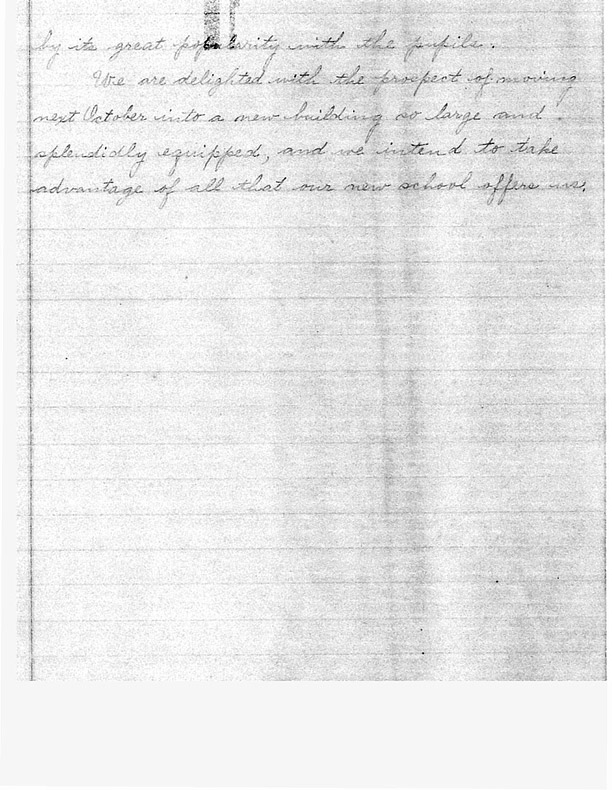 by its great popularity with the pupils.
We are delighted with the prospect of moving
next October into a new building so large and
splendidly equipped, and we intend to take
advantage of all that our new school offers us.